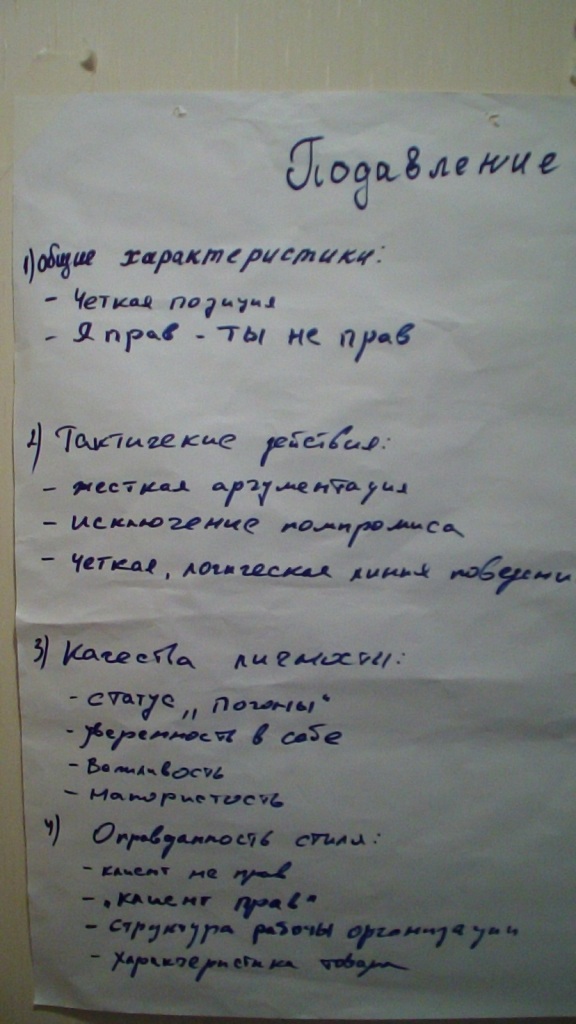 Подавление
1) Общие характеристики:
- Четкая позиция
- Я прав - ты не прав
2) Тактические действия:
- жесткая аргументация
- исключение компромиса
- четкая, логическая линия поведени
3) Качества личности:
- статус „погоны“
- уверенность в себе
- Вежливость
- напористость
4) Оправданность стиля:
- клиент не прав
- „клиент прав“
- структура работы организации
- характеристика товара